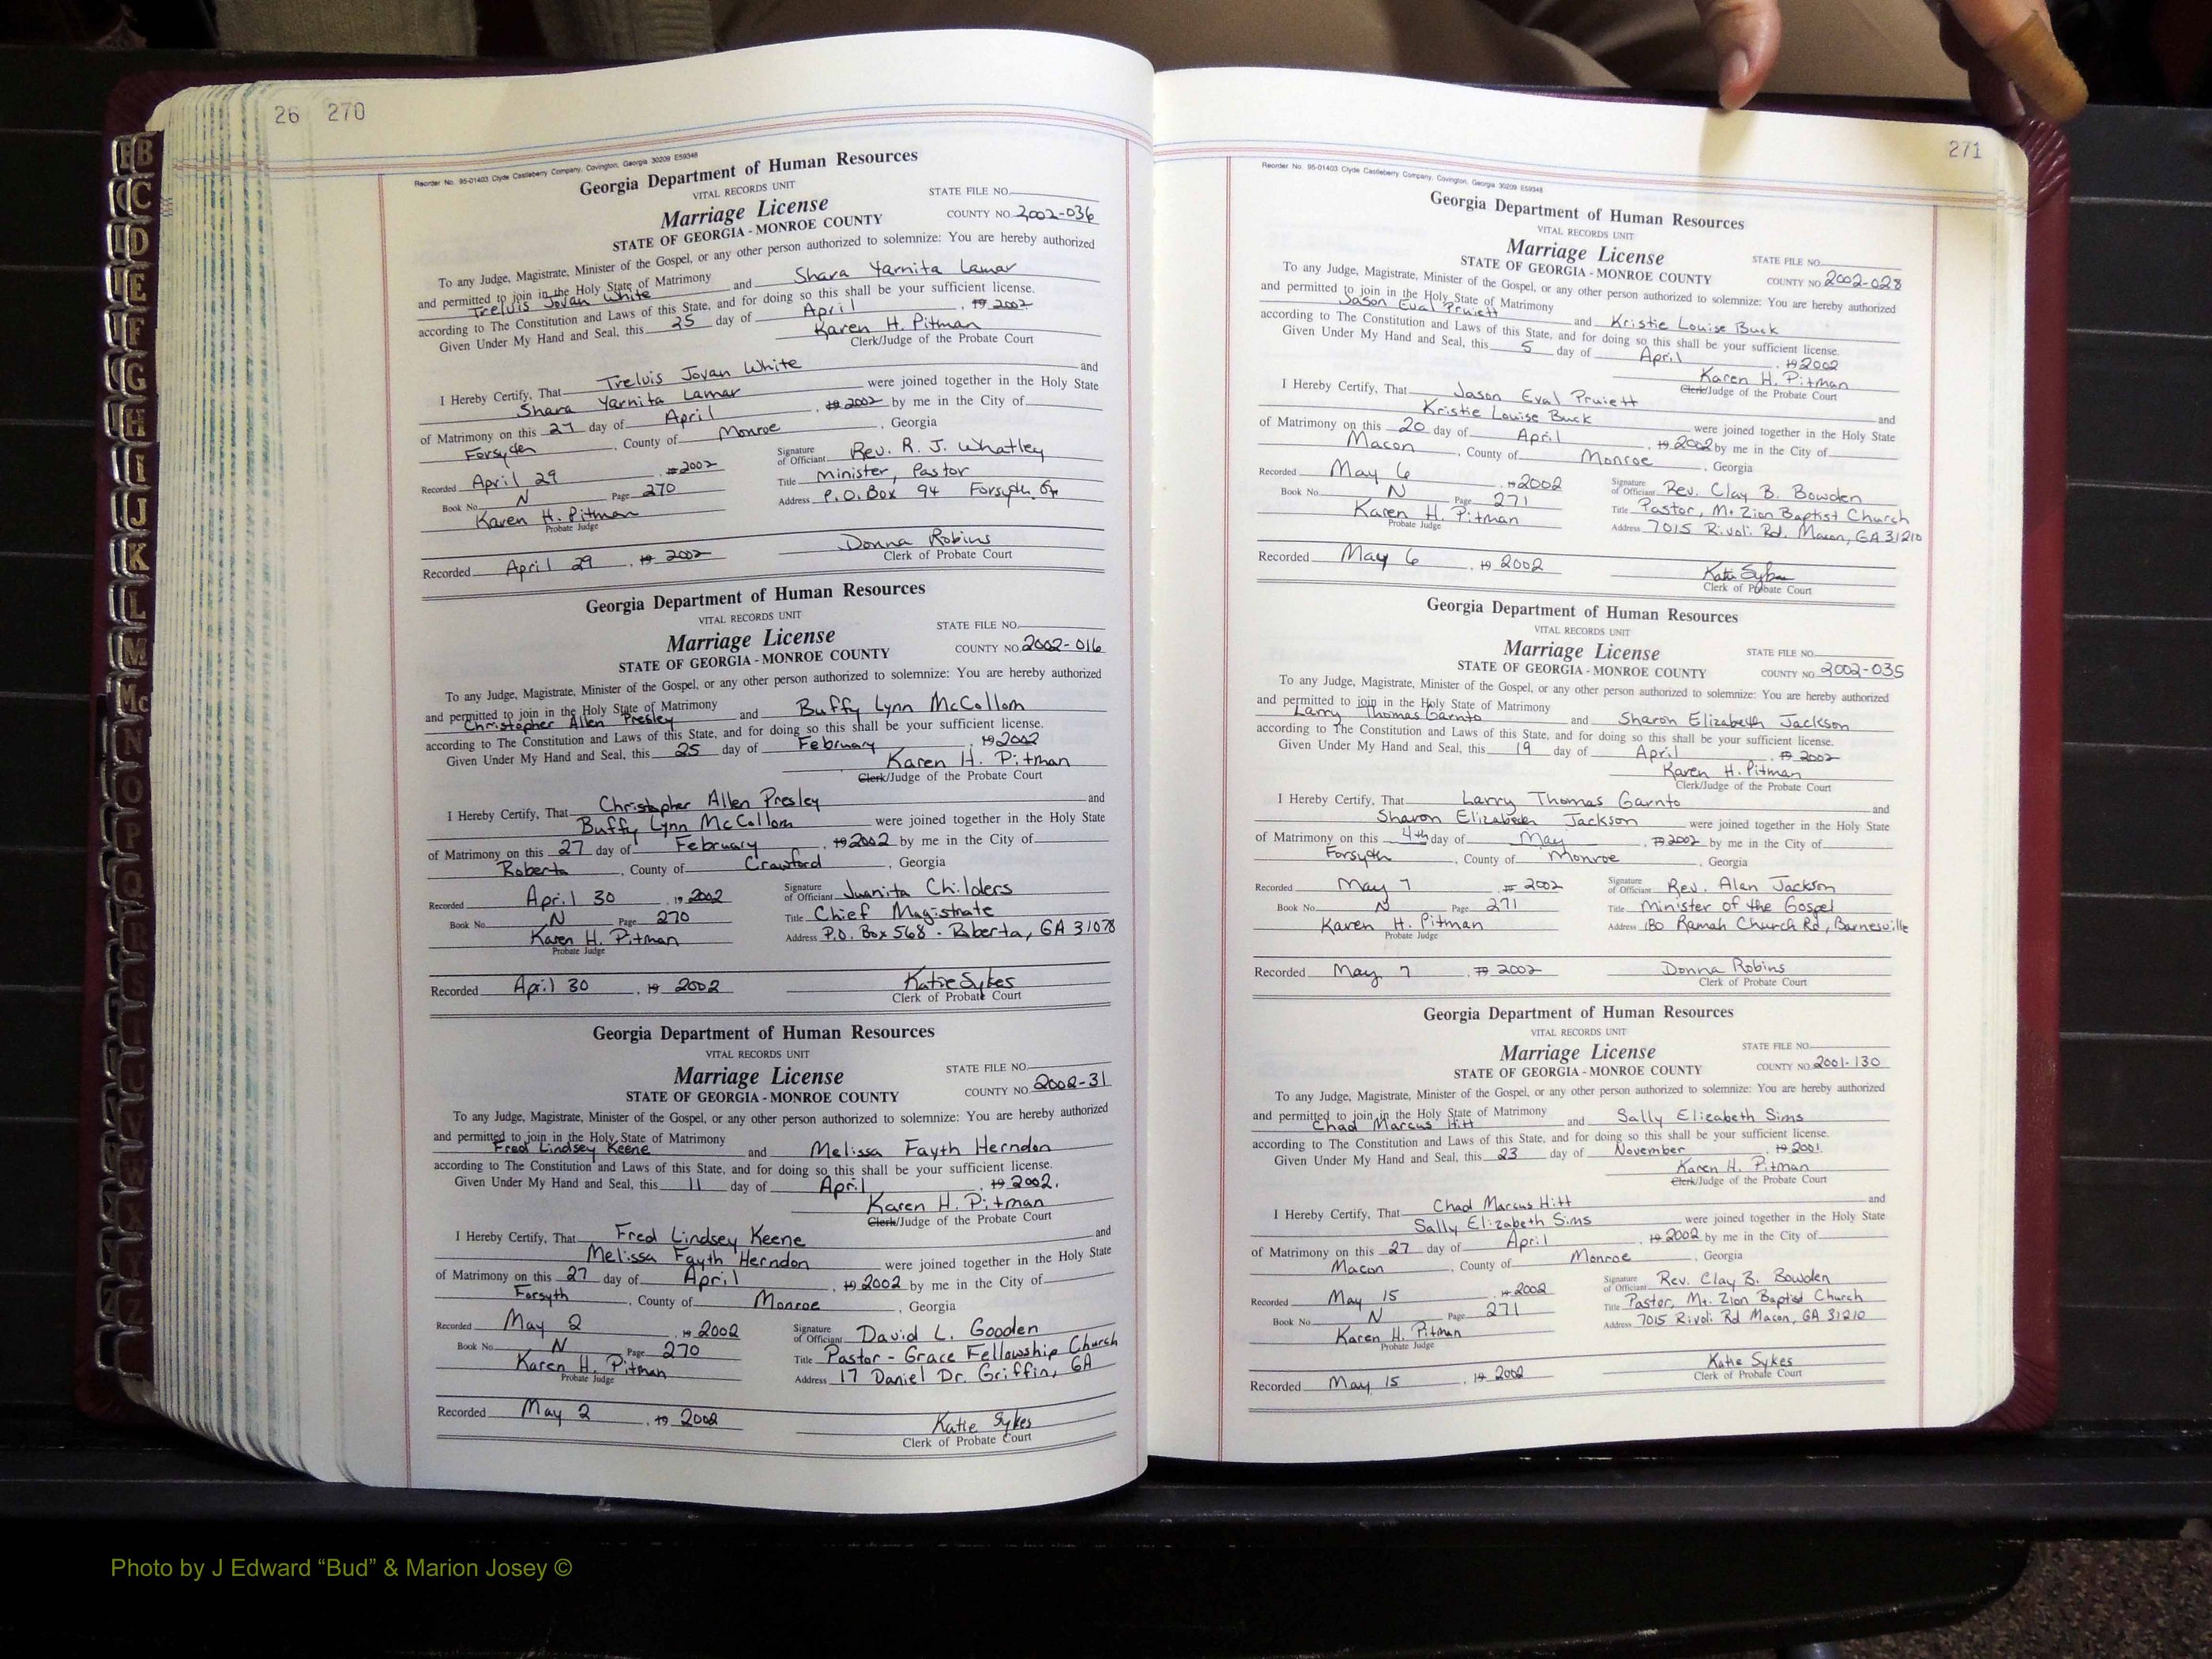 26 270
Reorder No. 95-01403 Clyde Castleberry Company, Covington, Georgia 30209 E59348
Georgia Department of Human Resources
VITAL RECORDS UNIT
Marriage License
STATE FILE NO.
STATE OF GEORGIA - MONROE COUNTY
COUNTY NO. 2002-036
To any Judge, Magistrate, Minister of the Gospel, or any other person authorized to solemnize: You are hereby authorized
and permitted to join in the Holy State of Matrimony
Treluis Jovan White and Shara Yarnita Lamar
according to The Constitution and Laws of this State, and for doing so this shall be your sufficient license.
Given Under My Hand and Seal, this 25 day of April, 19 2002
Karen H. Pitman
Clerk/Judge of the Probate Court
I Hereby Certify, That Treluis Jovan White and
Shara Yarnita Lamar were joined together in the Holy State
of Matrimony on this 27 day of April, 19 2002 by me in the City of
Forsyth, County of Monroe, Georgia
Recorded April 29, 2002 Signature of Officiant Rev. R. J. Whatley
Book No. N Page 270 Title Minister, Pastor
Karen H. Pitman Address P.O. Box 94 Forsyth Ga
Probate Judge
Donna Robins
Recorded April 29, 19 2002 Clerk of Probate Court
Georgia Department of Human Resources
VITAL RECORDS UNIT
Marriage License
STATE FILE NO.
STATE OF GEORGIA - MONROE COUNTY
COUNTY NO. 2002-016
To any Judge, Magistrate, Minister of the Gospel, or any other person authorized to solemnize: You are hereby authorized
and permitted to join in the Holy State of Matrimony
Christopher Allen Presley and Buffy Lynn McCollom
according to The Constitution and Laws of this State, and for doing so this shall be your sufficient license.
Given Under My Hand and Seal, this 25 day of February, 19 2002
Karen H. Pitman
Clerk/Judge of the Probate Court
I Hereby Certify, That Christopher Allen Presley and
Buffy Lynn McCollom were joined together in the Holy State
of Matrimony on this 27 day of February, 19 2002 by me in the City of
Roberta, County of Crawford, Georgia
Recorded April 30, 19 2002 Signature of Officiant Juanita Childers
Book No. N Page 270 Title Chief Magistrate
Karen H. Pitman Address P.O. Box 568 - Roberta, GA 31078
Probate Judge
Katie Sykes
Recorded April 30, 19 2002 Clerk of Probate Court
Georgia Department of Human Resources
VITAL RECORDS UNIT
Marriage License
STATE FILE NO.
STATE OF GEORGIA - MONROE COUNTY
COUNTY NO. 2002-31
To any Judge, Magistrate, Minister of the Gospel, or any other person authorized to solemnize: You are hereby authorized
and permitted to join in the Holy State of Matrimony
Fred Lindsey Keene and Melissa Fayth Herndon
according to The Constitution and Laws of this State, and for doing so this shall be your sufficient license.
Given Under My Hand and Seal, this 11 day of April, 19 2002.
Karen H. Pitman
Clerk/Judge of the Probate Court
I Hereby Certify, That Fred Lindsey Keene and
Melissa Fayth Herndon were joined together in the Holy State
of Matrimony on this 27 day of April, 19 2002 by me in the City of
Forsyth, County of Monroe, Georgia
Recorded May 2, 19 2002 Signature of Officiant David L. Gooden
Book No. N Page 270 Title Pastor - Grace Fellowship Church
Karen H. Pitman Address 17 Daniel Dr. Griffin, GA
Probate Judge
Katie Sykes
Recorded May 2, 19 2002 Clerk of Probate Court
271
Reorder No. 95-01403 Clyde Castleberry Company, Covington, Georgia 30209 E59348
Georgia Department of Human Resources
VITAL RECORDS UNIT
Marriage License
STATE FILE NO.
STATE OF GEORGIA - MONROE COUNTY
COUNTY NO. 2002-028
To any Judge, Magistrate, Minister of the Gospel, or any other person authorized to solemnize: You are hereby authorized
and permitted to join in the Holy State of Matrimony
Jason Eval Pruiett and Kristie Louise Buck
according to The Constitution and Laws of this State, and for doing so this shall be your sufficient license.
Given Under My Hand and Seal, this 5 day of April, 19 2002
Karen H. Pitman
Clerk/Judge of the Probate Court
I Hereby Certify, That Jason Eval Pruiett and
Kristie Louise Buck were joined together in the Holy State
of Matrimony on this 20 day of April, 19 2002 by me in the City of
Macon, County of Monroe, Georgia
Recorded May 6, 19 2002 Signature of Officiant Rev. Clay B. Bowden
Book No. N Page 271 Title Pastor, Mt. Zion Baptist Church
Karen H. Pitman Address 7015 Rivoli Rd. Macon, GA 31210
Probate Judge
Katie Sykes
Recorded May 6, 19 2002 Clerk of Probate Court
Georgia Department of Human Resources
VITAL RECORDS UNIT
Marriage License
STATE FILE NO.
STATE OF GEORGIA - MONROE COUNTY
COUNTY NO. 2002-035
To any Judge, Magistrate, Minister of the Gospel, or any other person authorized to solemnize: You are hereby authorized
and permitted to join in the Holy State of Matrimony
Larry Thomas Garnto and Sharon Elizabeth Jackson
according to The Constitution and Laws of this State, and for doing so this shall be your sufficient license.
Given Under My Hand and Seal, this 19 day of April, 19 2002
Karen H. Pitman
Clerk/Judge of the Probate Court
I Hereby Certify, That Larry Thomas Garnto and
Sharon Elizabeth Jackson were joined together in the Holy State
of Matrimony on this 4th day of May, 19 2002 by me in the City of
Forsyth, County of Monroe, Georgia
Recorded May 7, 19 2002 Signature of Officiant Rev. Alan Jackson
Book No. N Page 271 Title Minister of the Gospel
Karen H. Pitman Address 180 Ramah Church Rd, Barnesville
Probate Judge
Donna Robins
Recorded May 7, 19 2002 Clerk of Probate Court
Georgia Department of Human Resources
VITAL RECORDS UNIT
Marriage License
STATE FILE NO.
STATE OF GEORGIA - MONROE COUNTY
COUNTY NO. 2001-130
To any Judge, Magistrate, Minister of the Gospel, or any other person authorized to solemnize: You are hereby authorized
and permitted to join in the Holy State of Matrimony
Chad Marcus Hitt and Sally Elizabeth Sims
according to The Constitution and Laws of this State, and for doing so this shall be your sufficient license.
Given Under My Hand and Seal, this 23 day of November, 19 2001
Karen H. Pitman
Clerk/Judge of the Probate Court
I Hereby Certify, That Chad Marcus Hitt and
Sally Elizabeth Sims were joined together in the Holy State
of Matrimony on this 27 day of April, 19 2002 by me in the City of
Macon, County of Monroe, Georgia
Recorded May 15, 19 2002 Signature of Officiant Rev. Clay B. Bowden
Book No. N Page 271 Title Pastor, Mt. Zion Baptist Church
Karen H. Pitman Address 7015 Rivoli Rd Macon, GA 31210
Probate Judge
Katie Sykes
Recorded May 15, 19 2002 Clerk of Probate Court
B
C
D
E
F
G
H
I
J
K
L
M
Mc
N
O
P
Q
R
S
T
U
V
W
X
Y
Z
Photo by J Edward “Bud” & Marion Josey ©